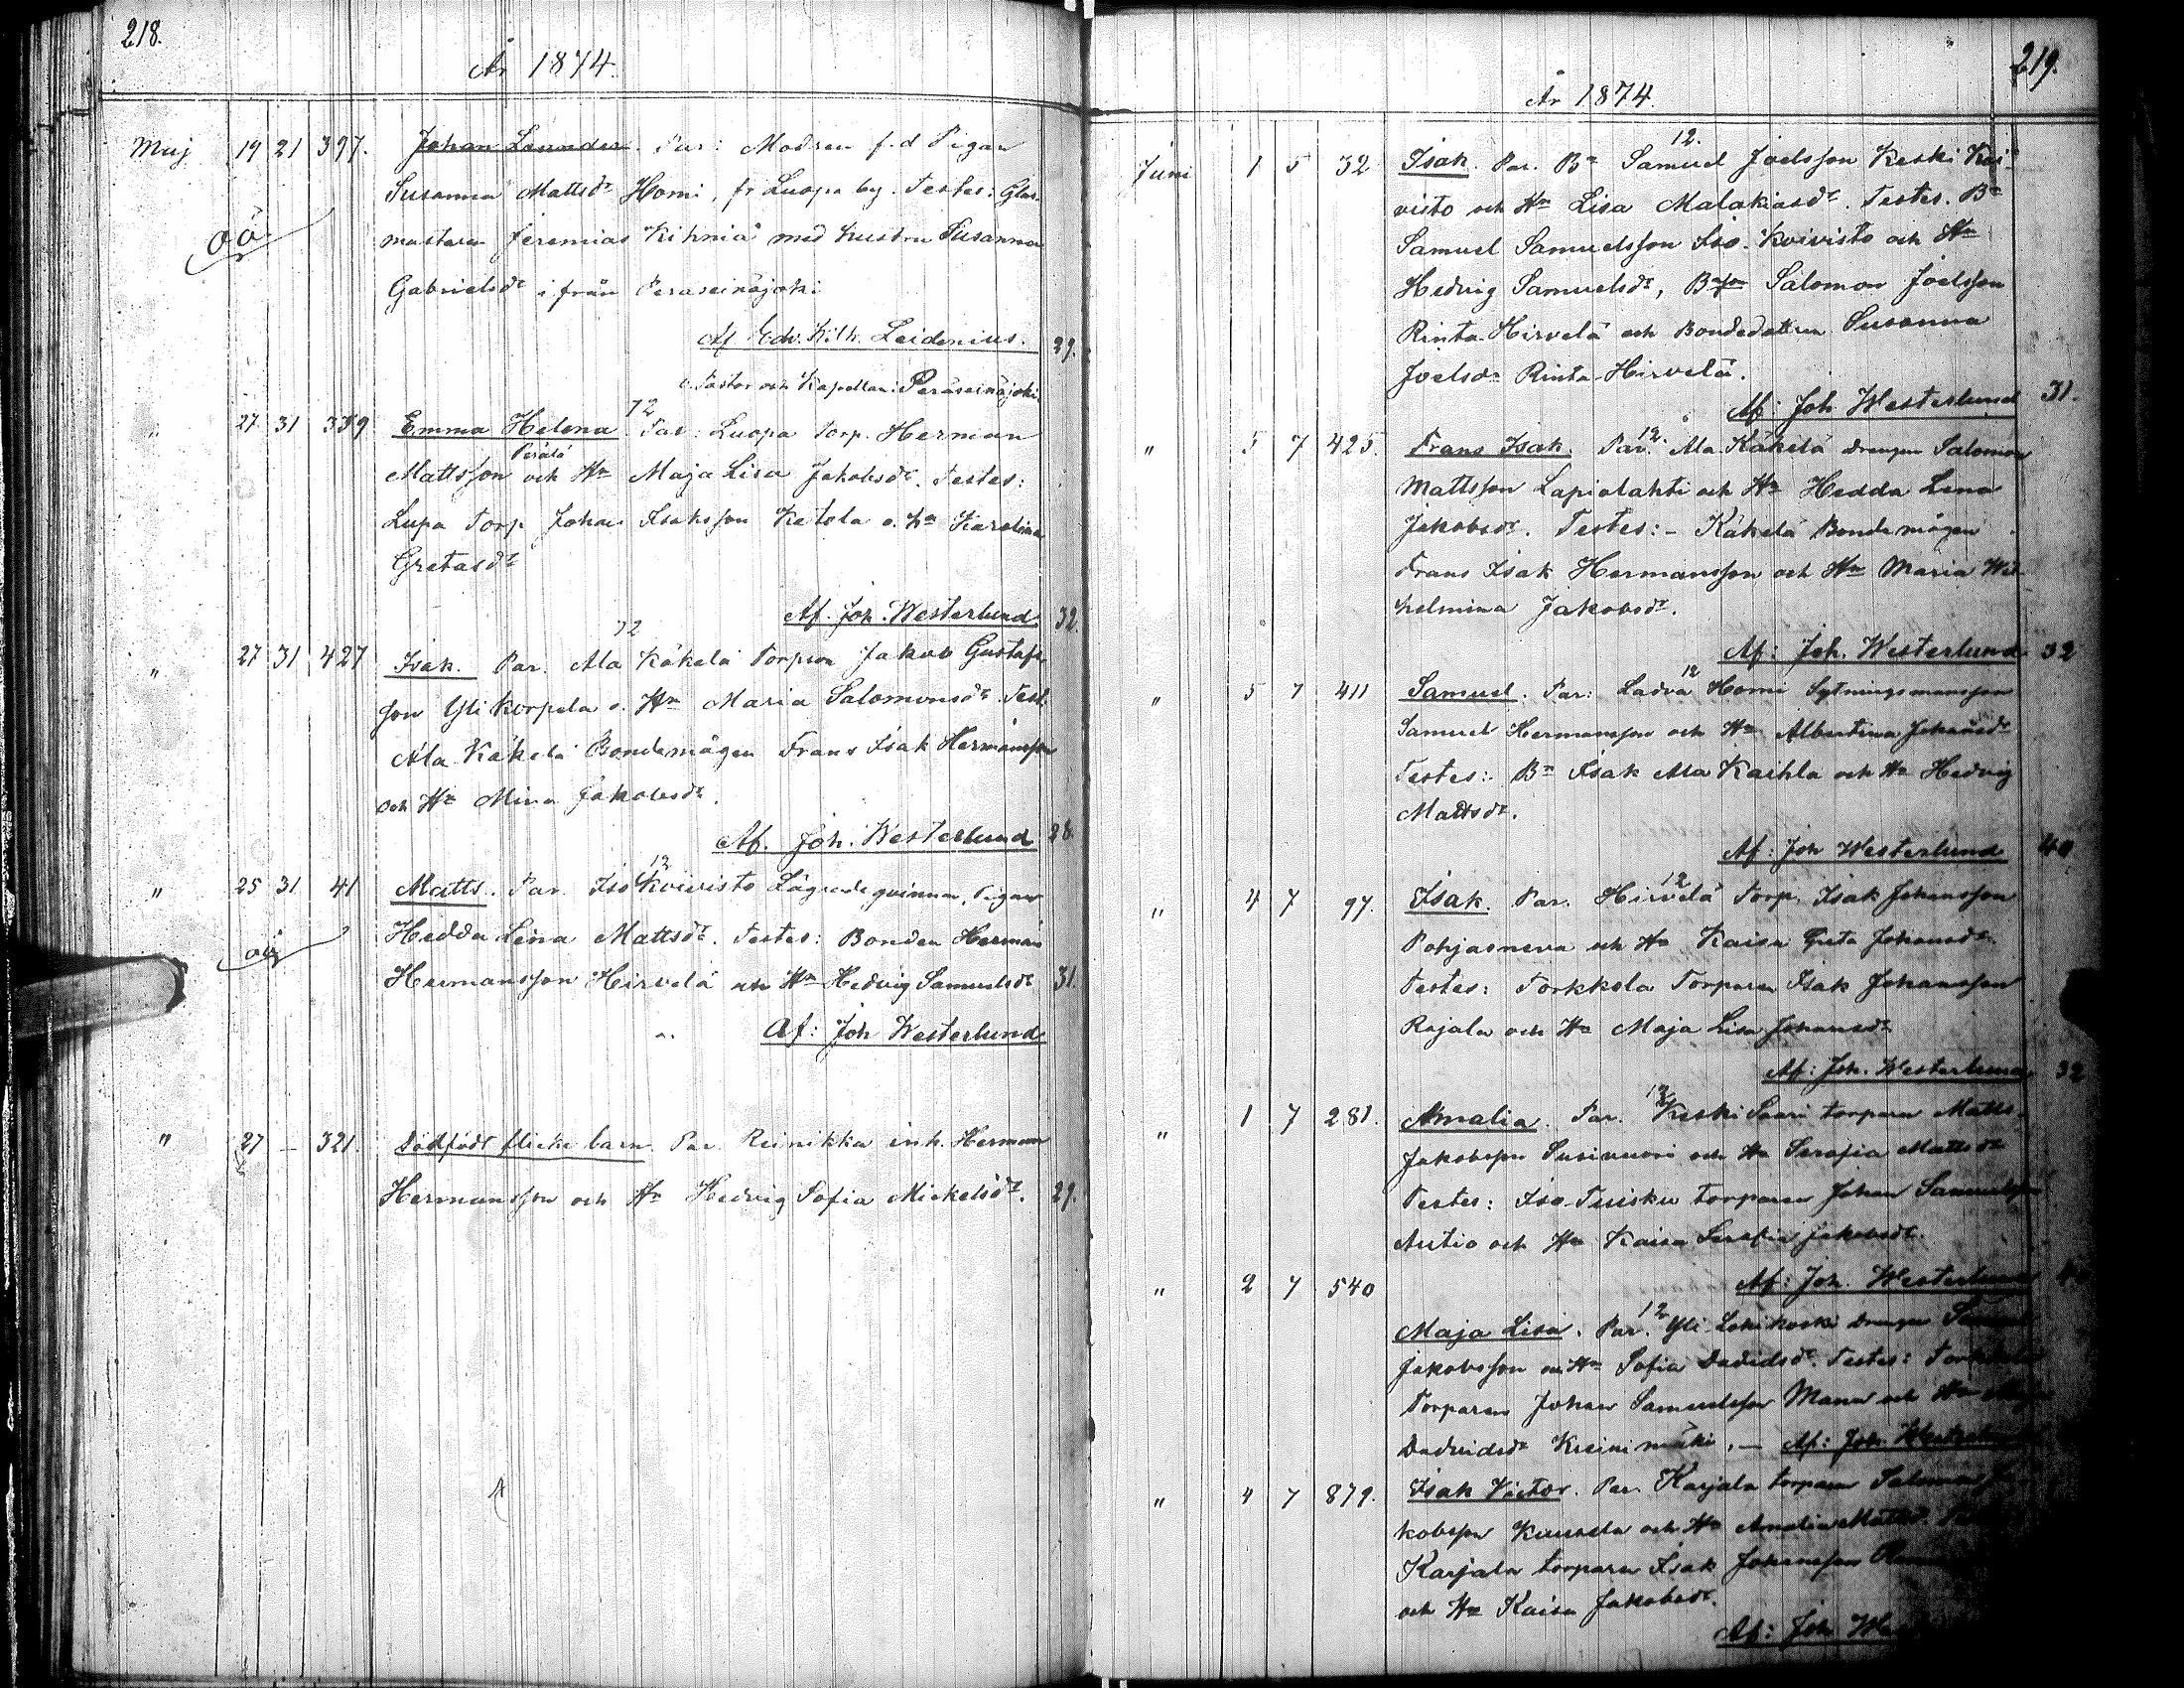 218.
År 1874.
Maj 19 21 397. Johan Leander. Par: Modren f.d Pigan
Susanna Mattsdr Homi, fr Luopa by. Testes: Glas-
oä
mästaren Jeremias Kihniä med hustru Susanna
Gabrielsdr i från Peräseinäjoki
Af Edv. Leidenius. 29.
v. Pastor och Kapellan i Peräseinäjoki
12
" 27 31 359 Emma Helena. Par: Luopa Torp. Herman
Perälä
Mattsson och Hu Maja Lisa Jakobsdr. Testes:
Lupa Torp Johan Isaksson Ketola o. hu Karolina
Gretasdr
Af. Joh. Westerlund 32.
12
" 27 31 427 Isak. Par. Ala Käkelä Torparn Jakob Gustafs-
son Yli korpela o. Hu Maria Salomonsdr. Test.
Ala Käkelä Bondemågen Frans Isak Hermansson
och Hu Mina Jakobsdr.
Af. Joh. Westerlund 28.
12
" 25 31 41 Matts. Par. Iso Koivisto Lägrade qvinnan, Pigan
Hedda Lena Mattsdr. Testes: Bonden Herman
oä
Hermansson Hirvelä och Hu Hedvig Samuelsdr 31.
Af: Joh Westerlund
" 27 – 321. Dödfödt flicke barn. Par. Reinikka inh. Herman
Hermansson och Hu Hedvig Sofia Mickelsdr. 29.
219.
År 1874.
12.
Juni 1 5 32 Isak. Par. Bn Samuel Joelsson Keski Koi-
visto och Hu Lisa Malakiasdr. Testes. Bn
Samuel Samuelsson Iso-Koivisto och Hu
Hedvig Samuelsdr, Bson Salomon Joelsson
Rinta-Hirvelä och Bondedottren Susanna
Joelsdr Rinta-Hirvelä.
Af: Joh Westerlund 31.
12.
" 5 7 425. Frans Isak. Par. Ala Käkelä Drengen Salomon
Mattsson Lapiolahti och Hu Hedda Lena
Jakobsdr. Testes: – Käkelä Bonde mågen
Frans Isak Hermansson och Hu Maria Wil-
helmina Jakobsdr.
Af: Joh. Westerlund 32
12
" 5 7 411 Samuel. Par: Ladva Homi Sytningsmansson
Samuel Hermansson och Hu Albertina Johansdr
Testes: Bn Isak Ala Kaihla och Hu Hedvig
Mattsdr.
Af: Joh Westerlund 40
12
" 4 7 97. Isak. Par. Hirvelä Torp. Isak Johansson
Pohjasneva och Hu Kaisa Greta Johansdr.
Testes: Torkkola Torparen Isak Johansson
Rajala och Hu Maja Lisa Johansdr
Af: Joh. Westerlund 32
12
" 1 7 281. Amalia. Par. Keski Saari torparen Matts
Jakobsson Susivuori och Hu Serafia Mattsdr
Testes: Iso-Tuisku torparen Johan Samuelsson
Autio och Hu Kaisa Serafia Jakobsdr.
Af: Joh. Westerlund
" 2 7 540
12
Maja Lisa. Par. Yli-Lohikoski Drengen
Jakobsson och Hu Sofia Davidsdr. Testes:
Torparen Johan Samuelsson Mana och Hu
Davidsdr – Af: Joh. Westerlund
" 4 7 879. Isak Victor. Par. Karjala torparen Salomon Ja-
kobsson Kuusela och Hu Amalia Mattsdr.
Karjala torparen Isak Johansson
och Hu Kaisa Jakobsdr.
Af: Joh